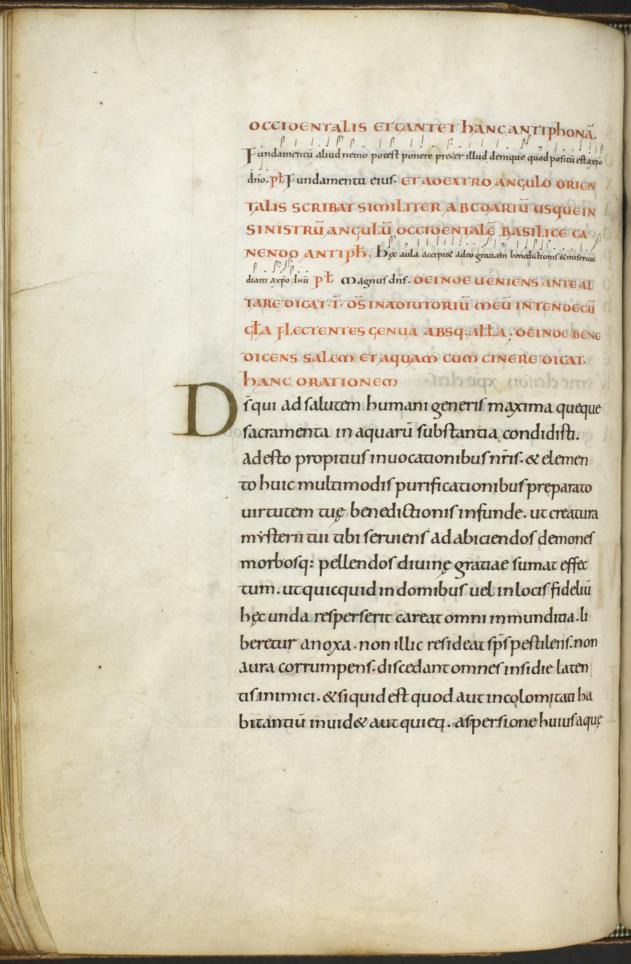 OCCIDENTALIS ET CANTET HANC ANTIPHONĀ.
Fundamentū aliud nemo potest ponere preter illud denique quod positū est a xpo
dn̄o. pł Fundamenta eius. ET A DEXTRO ANGULO ORIEN
TALIS SCRIBAT SIMILITER ABCDARIŪ USQUE IN
SINISTRŪ ANGULŪ OCCIDENTALĒ BASILICE CA
NENDO ANTIPĦ. Hęc aula accipiæ a deo gratiam benedictionis & misericor
diam a xp̄o ihū pł Magnus dn̄s. DEINDE UENIENS ANTE AL
TARE DICAT. D̄S IN ADIUTORIŪ MEŪ INTENDE CŪ
GŁA FLECTENTES GENUA ABSQ: AŁŁA. DEINDE BENE
DICENS SALEM ET AQUAM CUM CINERE DICAT.
HANC ORATIONEM
Ds̄ qui ad salutem humani generis maxima queque
sacramenta in aquarū substantia condidisti.
adesto propitius inuocationibus nr̄is. & elemen
to huic multimodis purificationibus preparato
uirtutem tuę benedictionis infunde. ut creatura
mysterii tui tibi seruiens ad abiciendos demones
morbosq: pellendos diuinę gratiae sumat effec
tum. ut quicquid in domibus uel in locis fideliū
hęc unda resperserit careat omni inmunditia. li
beretur a noxa. non illic resideat sp̄s pestilens. non
aura corrumpens. discedant omnes insidie laten
tis inimici. & si quid est quod aut incolomitati ha
bitantiū inuid& aut quieti. aspersione huius aquę